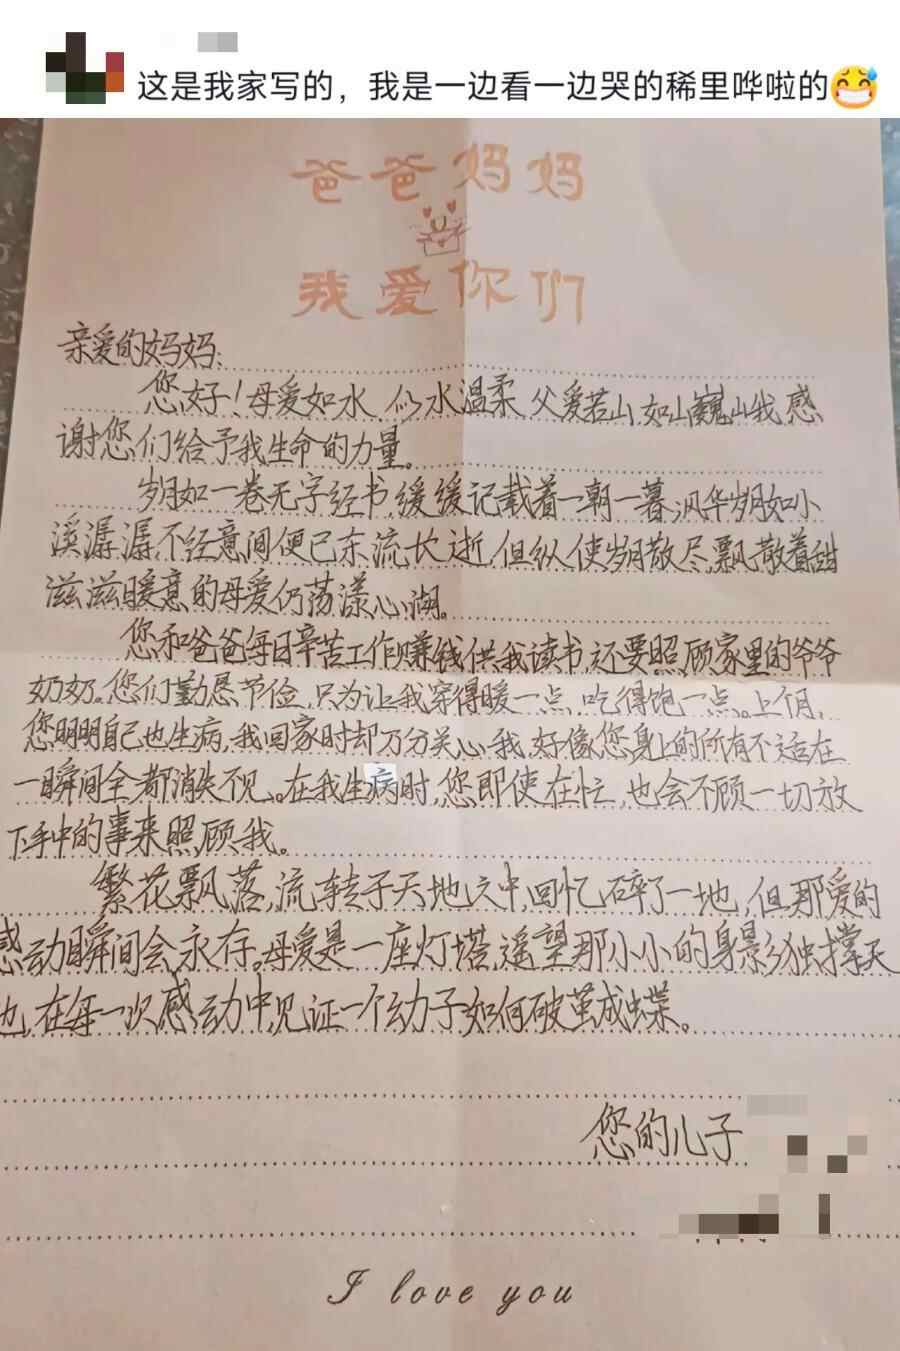 这是我家写的，我是一边看一边哭的稀里哗啦的
爸爸妈妈
我爱你们
亲爱的妈妈：
您好！母爱如水，似水温柔，父爱若山，如山巍山我感
谢您们给予我生命的力量。
岁月如一卷无字经书，缓缓记载着一朝一暮，风华岁月如小
溪潺潺，不经意间便已东流长逝，但纵使岁月散尽，飘散着甜
滋滋暖意的母爱仍荡漾心湖。
您和爸爸每日辛苦工作赚钱供我读书，还要照顾家里的爷爷
奶奶。您们勤恳节俭，只为让我穿得暖一点，吃得饱一点。上个月，
您明明自己也生病，我回家时却万分关心我，好像您身上的所有不适在
一瞬间全都消失不见。在我生病时，您即使在忙，也会不顾一切放
下手中的事来照顾我。
繁花飘落，流转于天地之中，回忆碎了一地，但那爱的
感动瞬间会永存。母爱是一座灯塔，遥望那小小的身影独撑天
地，在每一次感动中，见证一个幼子如何破茧成蝶。
您的儿子
I love you